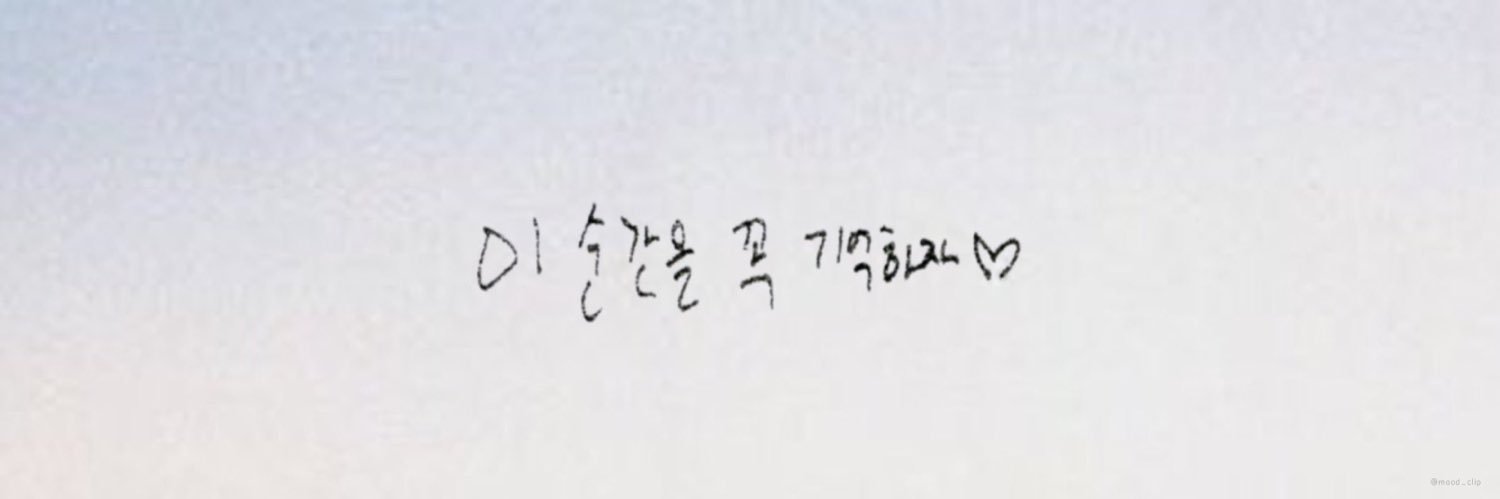 이 순간을 꼭 기억하자♡
@mood_clip